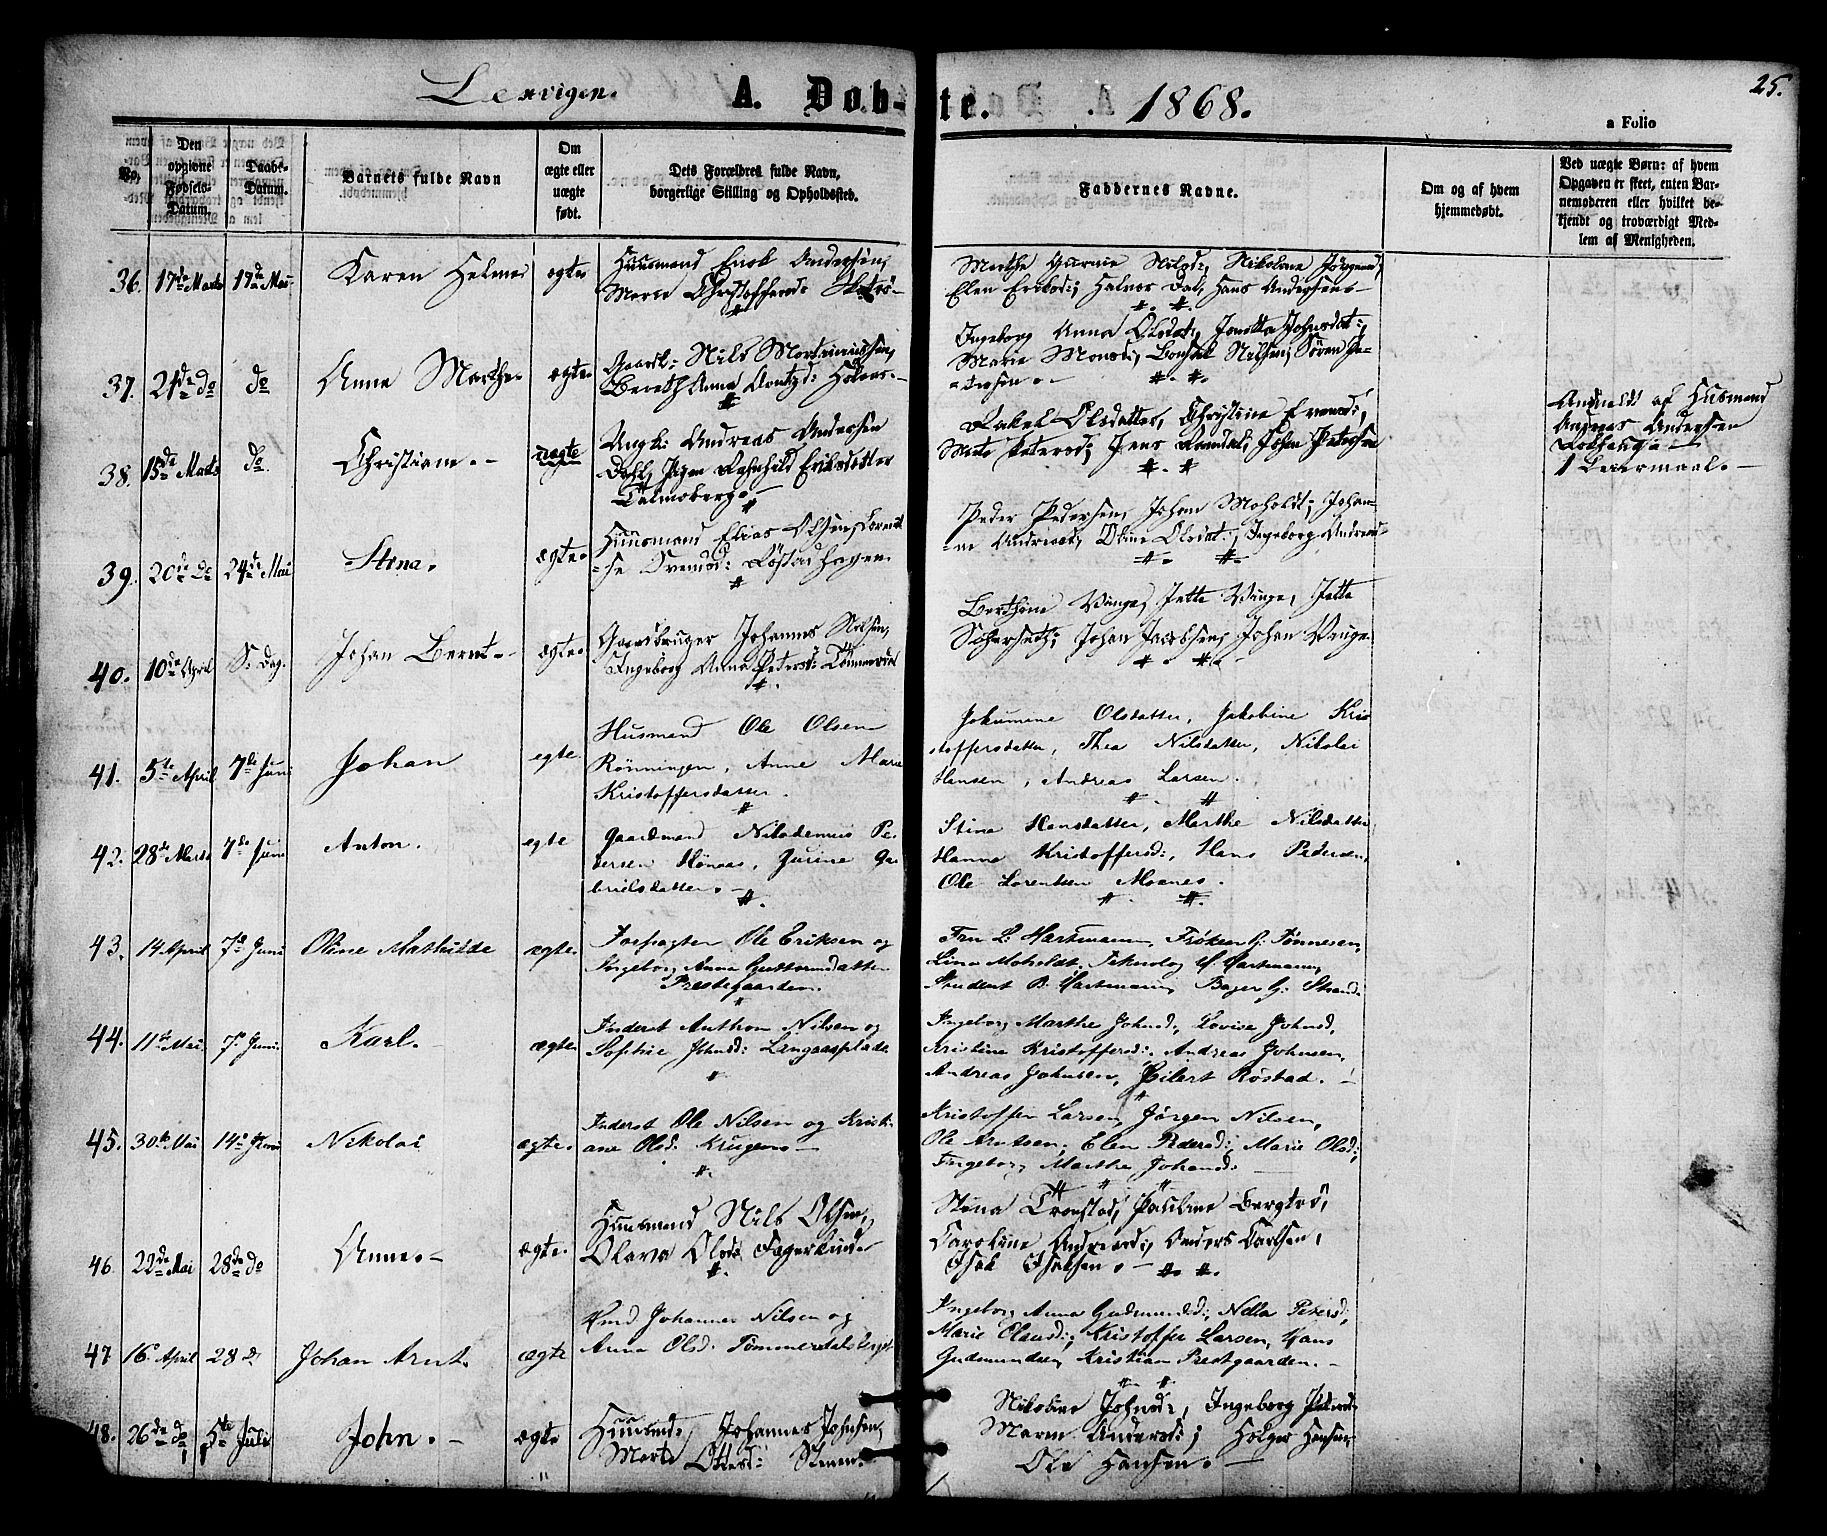 Lexvigen. A. Døbte. 1868. 25.
a Folio
No.
Den opgivne Fødsels-Datum.
Daabs-Datum.
Barnets fulde Navn
Om ægte eller uægte født.
Dets Forældres fulde Navn, borgerlige Stilling og Opholdssted.
Faddernes Navne.
Om og af hvem hjemmedøbt.
Ved uægte Børn: af hvem Opgaven er skeet, enten Barnemoderen eller hvilket bekjendt og troværdigt Medlem af Menigheden.
36. 17de Marts 17de Mai Karen Helmes ægte
Huusmand Enok Andersen,
Maren Christoffersd:
Marthe Nilsd:, Nikoline Jørgensd,
Elen Eriksd:, Halvor Dal, Hans Andersen
37. 24de do do Anne Marthe ægte
Gaardb: Nils Martiniussen,
Bereth Anna
Ingeborg Anna Olsdat:, Jonetta Johnsdat:,
Marie Monsd:, Nilsen, Sören Pe-
tersen.
38. 15de Marts do Christiane. uægte
Ungk: Andreas Andersen
Pigen Ragnhild Eriksdatter
Rakel Olsdatter, Christine
Mete Petersd:, Jens Johan Petersen
Anmeldt af Husmand
Andreas Andersen
1 Leiermaal.
39. 20de do 24de Mai Stina. ægte
Huusmand Elias Olsen,
se Svendsd: Röstadhagen
Peder Pedersen, Johan Moholdt, Johan-
ne Andreasd, Oline Olsdat:, Ingeborg Andreasd
40. 10de April S. Dag. Johan Bernt ægte
Gaardbruger Johannes Nilsen,
Ingeborg Anna Petersd: Tömmerdal
Berthine Vinge, Jette Vinge, Jette
Johan Jacobsen, Johan Vinge
41. 5te April 7de Juni Johan egte
Husmand Ole Olsen
Rönningen, Anne Marie
Kristoffersdatter.
Jokumine Olsdatter, Jakobine Kris
stoffersdatter, Thea Nilsdatter, Nikolai
Hansen, Andreas Larsen.
42. 28de Marts 7de Juni Anton. egte
Gaardmand Nikodemus Pe-
dersen Hönaas, Jurine Ga-
brielsdatter.
Stina Hansdatter, Marthe Nilsdatter
Hanna Kristoffersd:, Hans Pedersen,
Ole Lorentsen Moanes.
43. 14 April 7de Juni Oline Mathilde ægte
Forpagter Ole Eriksen og
Ingeborg Anna Guttormsdatter
Prestegaarden.
Fru L: Hartmann, Frøken G: Tønnesen,
Lina Moholdt, Teknolog H Hartmann,
Student B: Hartmann, Bager G: Strand:
44. 11te Mai 7de Juni Karl. ægte
Inderst Anthon Nilsen og
Sophie Johnsd: Langaasplads
Ingeborg Marthe Johnsd:, Lovise Johnsd,
Kristine Kristoffersd:, Andreas Johnsen,
Andreas Johnsen, Eilert Röstad.
45. 30te Mai 14de Juni Nikolai ægte
Inderst Ole Nilsen og Kristi-
ane Olsd: Krugens
Kristoffer Larsen, Jörgen Nilsen,
Ole Arntsen, Elen Pedersd:, Marie Olsd:,
Ingeborg Marthe Johansd:
46. 22de Mai 28de do Anne. ægte
Huusmand Nils Olsen,
Olava Olsd: Fagerlund
Stina Tronstad, Pauline Bergtrö,
Caroline Andreasd:, Anders Carlsen,
Isak Isaksen.
47 16 April 28 d Johan Arnt. ægte
Hmd Johannes Nilsen og
Anna Olsd. Tömmerdalsberget
Ingeborg Anna Gudmundsd:, Nella Petersd:
Marie Olausd:, Kristoffer Larsen, Hans
Gudmundsen, Kristian Prestgaarden.
48. 26de do 5te Juli John. ægte
Huusmd: Johannes Johnsen,
Marte Ottesd:
Nikoline Johnsd:, Ingeborg Petersd
Maren Andersd:, Holger Hansen,
Ole Hansen.